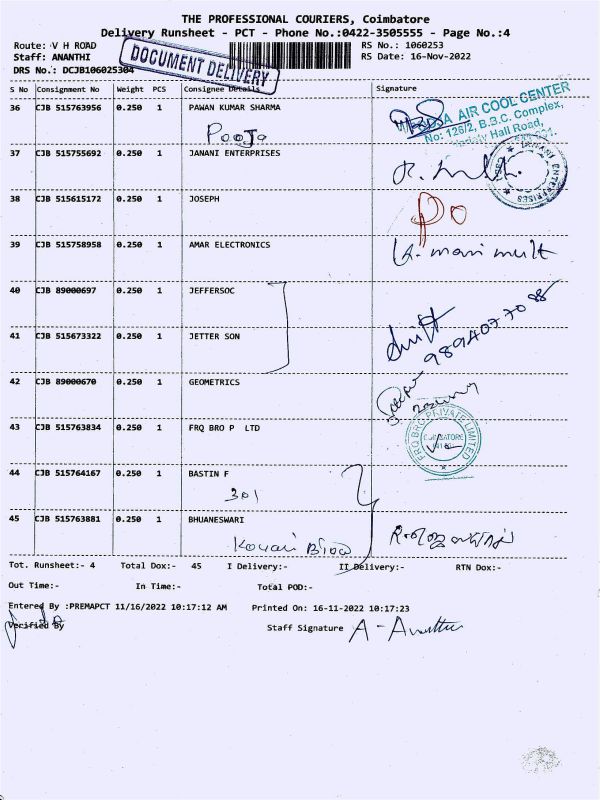 THE PROFESSIONAL COURIERS, Coimbatore
Delivery Runsheet - PCT - Phone No.:0422-3505555 - Page No.:4
Route: V H ROAD
RS No.: 1060253
Staff: ANANTHI
RS Date: 16-Nov-2022
DRS No.: DCJB106025304
DOCUMENT DELIVERY
S No Consignment No Weight PCS Consignee Details Signature
36 CJB 515763956 0.250 1 PAWAN KUMAR SHARMA
Pooja
AIR COOL CENTER
No: 126/2, B.B.C. Complex,
Hall Road,
37 CJB 515755692 0.250 1 JANANI ENTERPRISES
JANANI ENTERPRISES
38 CJB 515615172 0.250 1 JOSEPH
39 CJB 515758958 0.250 1 AMAR ELECTRONICS
40 CJB 89000697 0.250 1 JEFFERSOC
41 CJB 515673322 0.250 1 JETTER SON
42 CJB 89000670 0.250 1 GEOMETRICS
43 CJB 515763834 0.250 1 FRQ BRO P LTD
FRQ BRO PRIVATE LIMITED
COIMBATORE
44 CJB 515764167 0.250 1 BASTIN F
301
45 CJB 515763881 0.250 1 BHUANESWARI
Tot. Runsheet:- 4 Total Dox:- 45 I Delivery:- II Delivery:- RTN Dox:-
Out Time:- In Time:- Total POD:-
Entered By :PREMAPCT 11/16/2022 10:17:12 AM Printed On: 16-11-2022 10:17:23
Verified By
Staff Signature